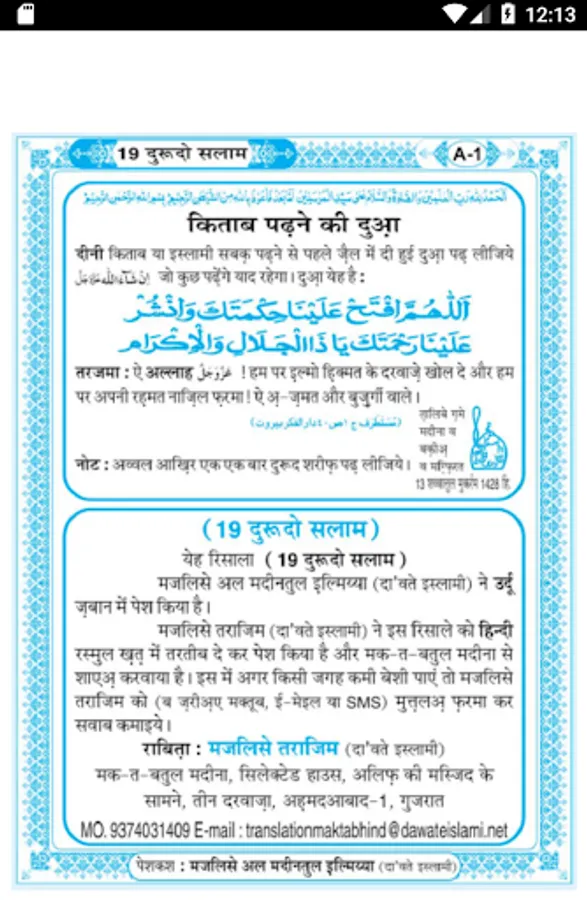 12:13
19 दुरूदो सलाम
A-1
اَلْحَمْدُ لِلّٰهِ رَبِّ الْعٰلَمِيْنَ وَالصَّلٰوةُ وَالسَّلَامُ عَلٰى سَيِّدِ الْمُرْسَلِيْنَ اَمَّا بَعْدُ فَاَعُوْذُ بِاللّٰهِ مِنَ الشَّيْطٰنِ الرَّجِيْمِ بِسْمِ اللّٰهِ الرَّحْمٰنِ الرَّحِيْمِ
किताब पढ़ने की दुआ़
दीनी किताब या इस्लामी सबक़ पढ़ने से पहले ज़ैल में दी हुई दुआ़ पढ़ लीजिये
اِنْ شَآءَ اللّٰه عَزَّوَجَلَّ जो कुछ पढ़ेंगे याद रहेगा। दुआ़ येह है :
اَللّٰهُمَّ افْتَحْ عَلَيْنَا حِكْمَتَكَ وَانْشُرْ
عَلَيْنَا رَحْمَتَكَ يَا ذَا الْجَلَالِ وَالْاِكْرَام
तरजमा : ऐ अल्लाह عَزَّوَجَلَّ ! हम पर इल्मो हिक्मत के दरवाज़े खोल दे और हम
पर अपनी रहमत नाज़िल फ़रमा ! ऐ अ़-ज़मत और बुज़ुर्गी वाले।
(مُسْتَطْرَف ج ١ ص ٤٠ دار الفكر بيروت)
त़ालिबे ग़मे
मदीना व
बक़ीअ़
व मग़्फ़िरत
13 शव्वालुल मुकर्रम 1428 हि.
नोट : अव्वल आख़िर एक एक बार दुरूद शरीफ़ पढ़ लीजिये।
( 19 दुरूदो सलाम )
येह रिसाला ( 19 दुरूदो सलाम )
मजलिसे अल मदीनतुल इल्मिय्या (दा'वते इस्लामी) ने उर्दू
ज़बान में पेश किया है।
मजलिसे तराजिम (दा'वते इस्लामी) ने इस रिसाले को हिन्दी
रस्मुल ख़त़ में तरतीब दे कर पेश किया है और मक-त-बतुल मदीना से
शाएअ़ करवाया है। इस में अगर किसी जगह कमी बेशी पाएं तो मजलिसे
तराजिम को (ब ज़रीअ़ए मक्तूब, ई-मेइल या SMS) मुत्तलअ़ फ़रमा कर
सवाब कमाइये।
राबित़ा : मजलिसे तराजिम (दा'वते इस्लामी)
मक-त-बतुल मदीना, सिलेक्टेड हाउस, अलिफ़ की मस्जिद के
सामने, तीन दरवाज़ा, अह़मदआबाद-1, गुजरात
MO. 9374031409 E-mail : translationmaktabhind@dawateislami.net
पेशकश : मजलिसे अल मदीनतुल इल्मिय्या (दा'वते इस्लामी)